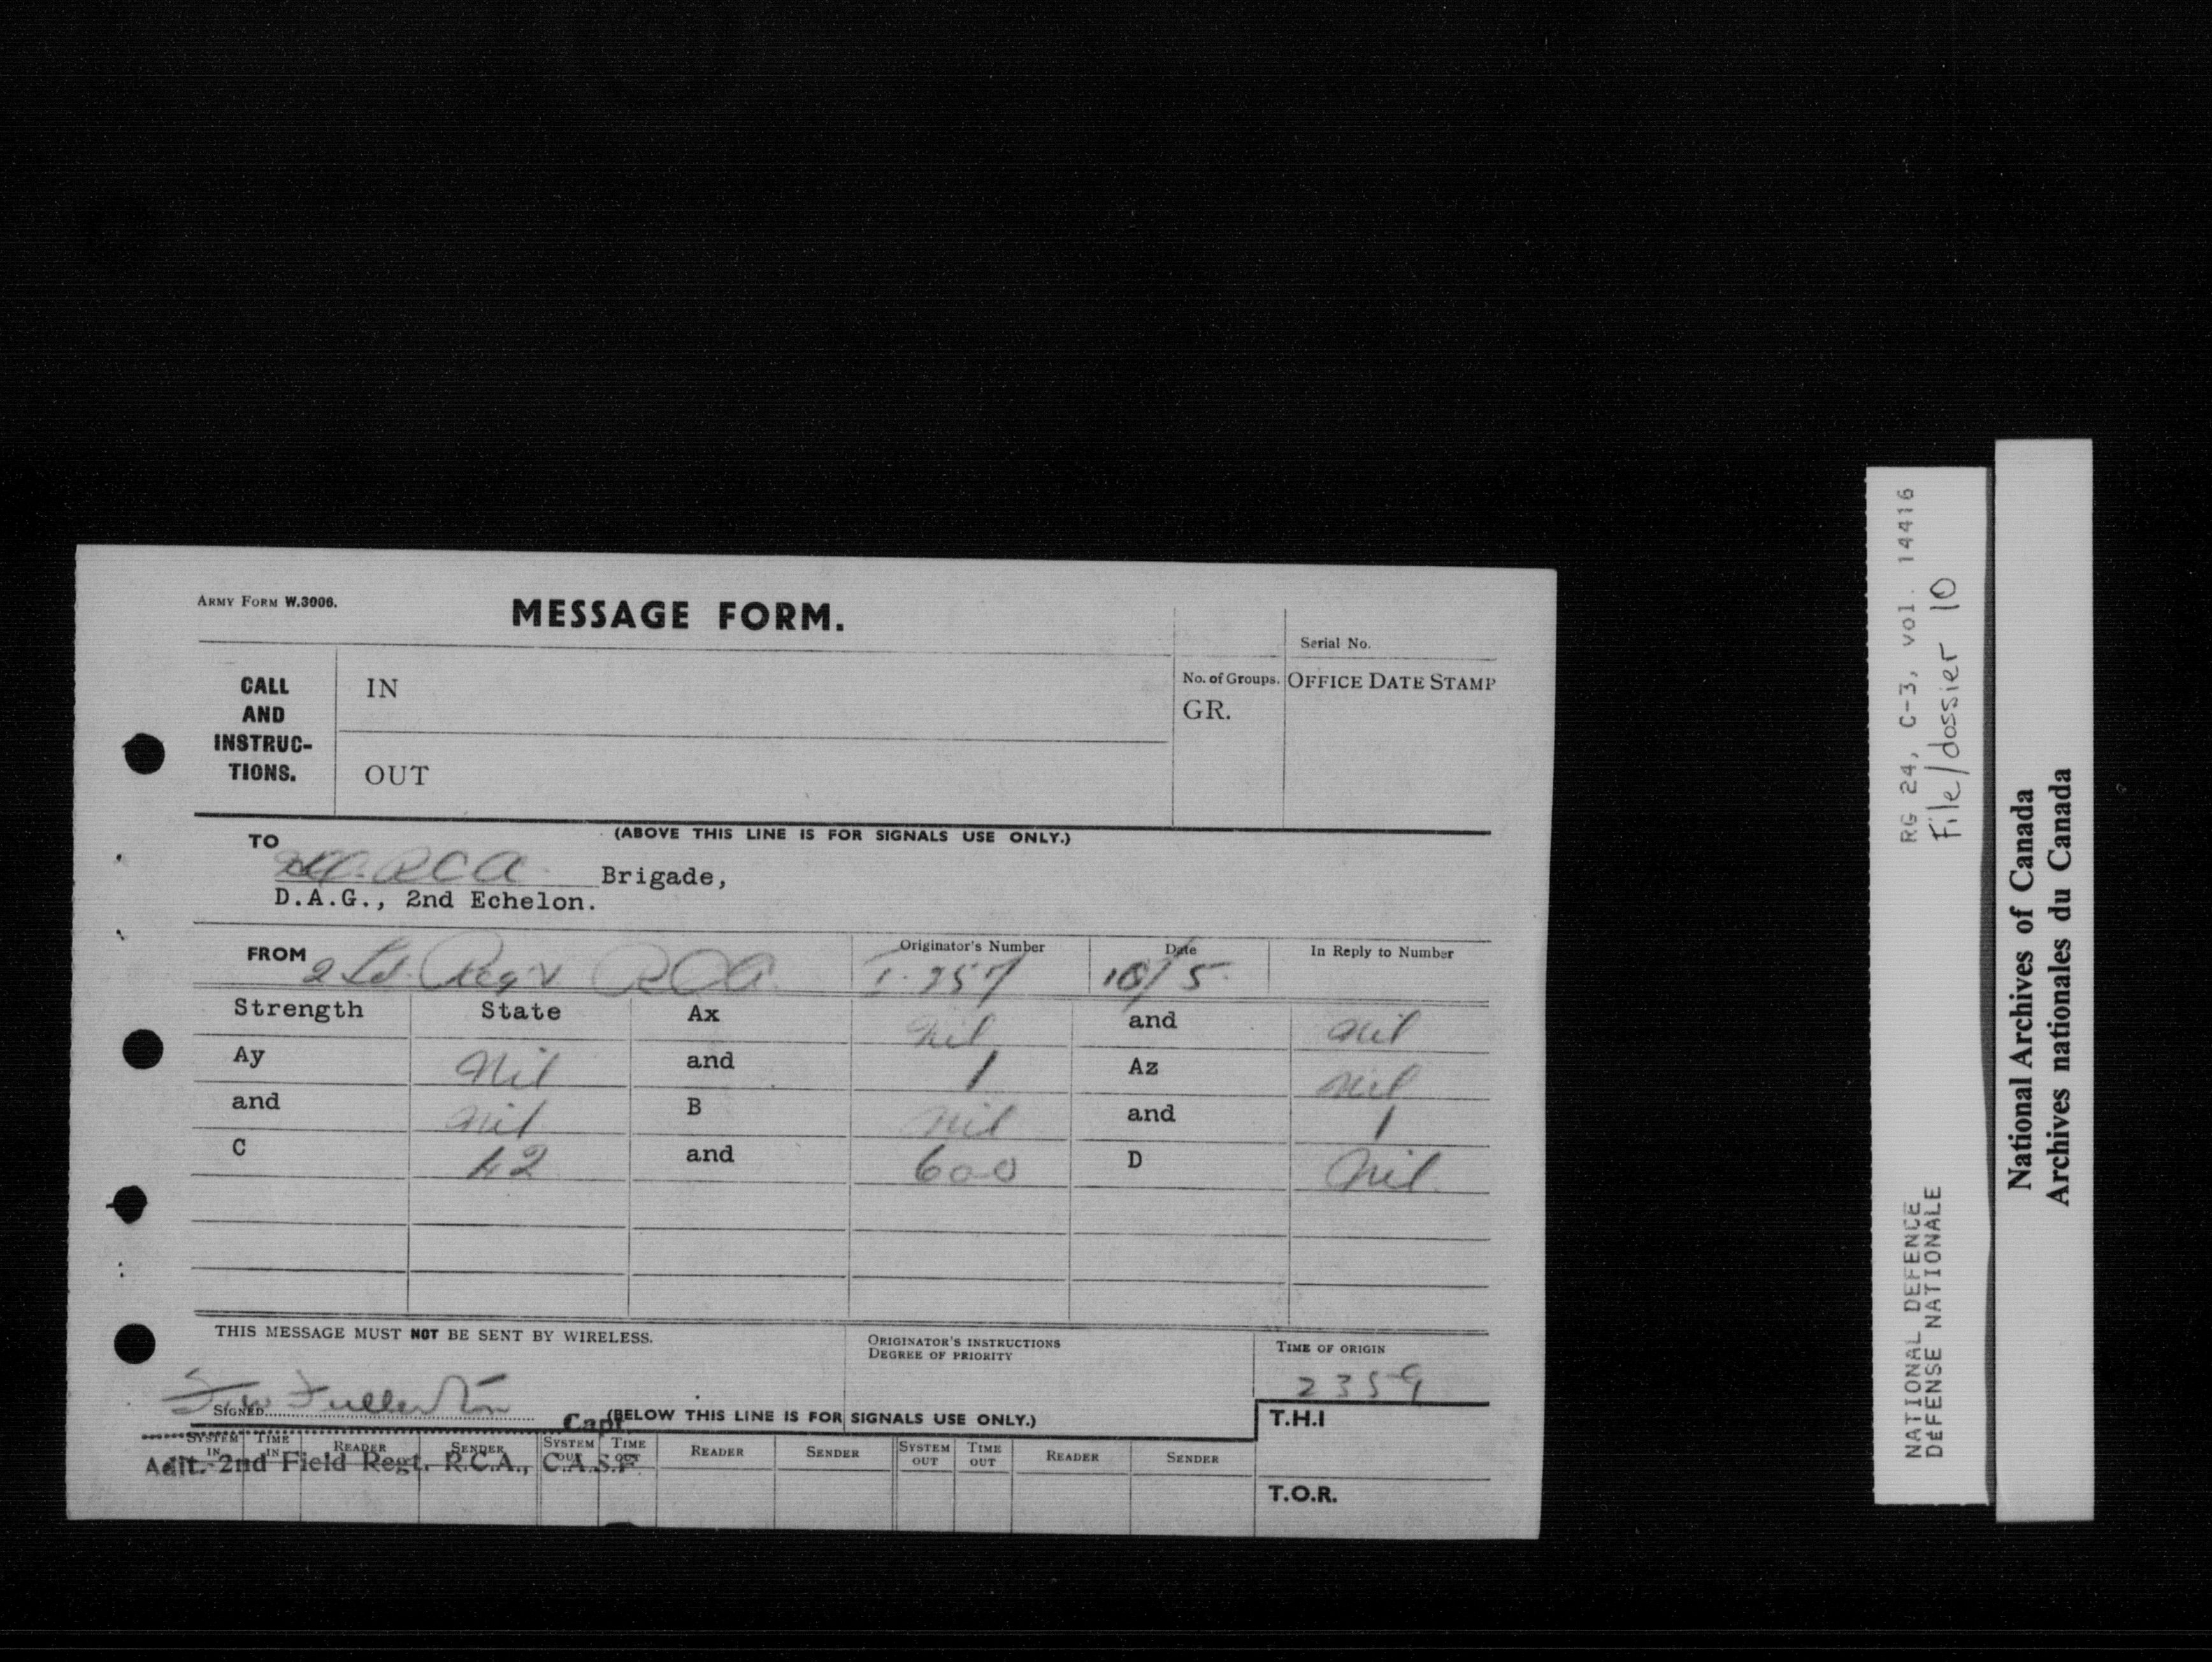 ARMY FORM W.3006.
MESSAGE FORM.
Serial No.
CALL AND INSTRUC- TIONS.
IN
No. of Groups.
OFFICE DATE STAMP
GR.
OUT
(ABOVE THIS LINE IS FOR SIGNALS USE ONLY.)
TO
RCA Brigade,
D.A.G., 2nd Echelon.
FROM 2 Fd. Reg't RCA
Originator's Number
Date
In Reply to Number
Strength State Ax Nil and Nil
Ay Nil and 1 Az Nil
and Nil B Nil and 1
C 42 and 600 D Nil.
THIS MESSAGE MUST NOT BE SENT BY WIRELESS.
ORIGINATOR'S INSTRUCTIONS
DEGREE OF PRIORITY
TIME OF ORIGIN
2359
Fullerton
SIGNED
Capt.
(BELOW THIS LINE IS FOR SIGNALS USE ONLY.)
T.H.I
SYSTEM IN TIME IN READER SENDER SYSTEM OUT TIME OUT READER SENDER SYSTEM OUT TIME OUT READER SENDER
Adjt. 2nd Field Regt. R.C.A., C.A.S.F.
T.O.R.
RG 24, C-3, vol. 14416
File/dossier 10
NATIONAL DEFENCE
DÉFENSE NATIONALE
National Archives of Canada
Archives nationales du Canada